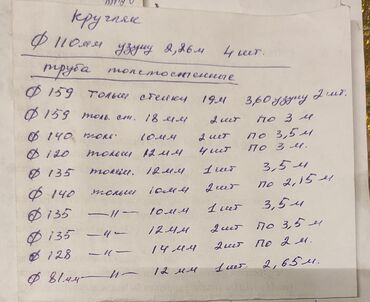 Кругляк
Ф 110мм узуну 2,26м 4 шт.
труба толстостенные
Ф 159 толщ стенки 19м 3,60 узуну 2 шт.
Ф 159 толщ. ст. 18 мм 2 шт по 3 м
Ф 140 толщ. 10 мм 2 шт по 3,5 м
Ф 120 толщ 12 мм 4 шт по 3 м.
Ф 135 толщ. 12 мм 1 шт 3,5 м
Ф 140 толщ 10 мм 2 шт по 2,15 м
Ф 135 —||— 10 мм 1 шт 3,5 м
Ф 135 —||— 12 мм 2 шт по 3,5 м
Ф 128 —||— 14 мм 2 шт по 2 м.
Ф 81мм —||— 12 мм 1 шт 2,65 м.